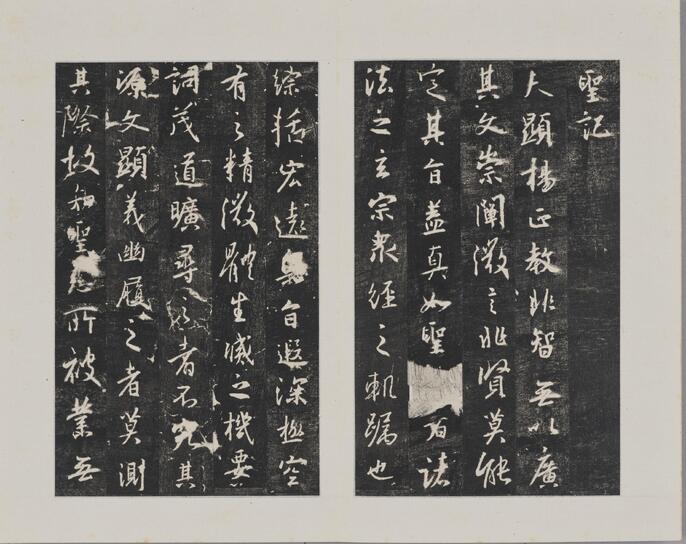 聖記
夫顯揚正教非智無以廣
其文崇闡微言非賢莫能
定其旨蓋真如聖者諸
法之玄宗衆經之軌躅也
綜括宏遠奧旨遐深極空
有之精微體生滅之機要
詞茂道曠尋之者不究其
源文顯義幽履之者莫測
其際故知聖慈所被業無